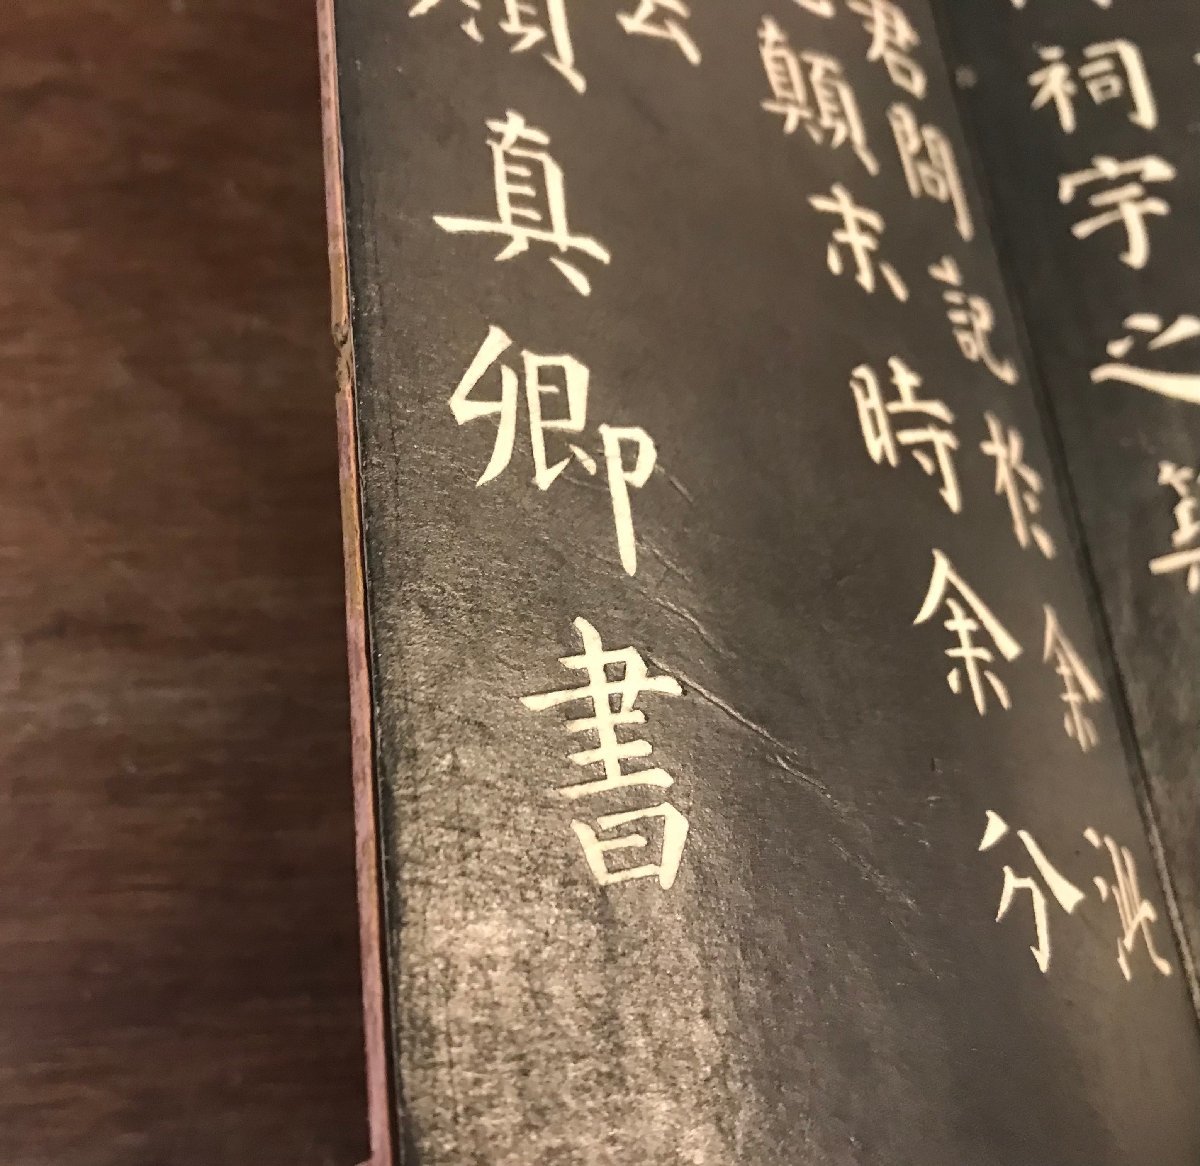 祠宇之
君間記於余
顛末時余分
云
真卿書